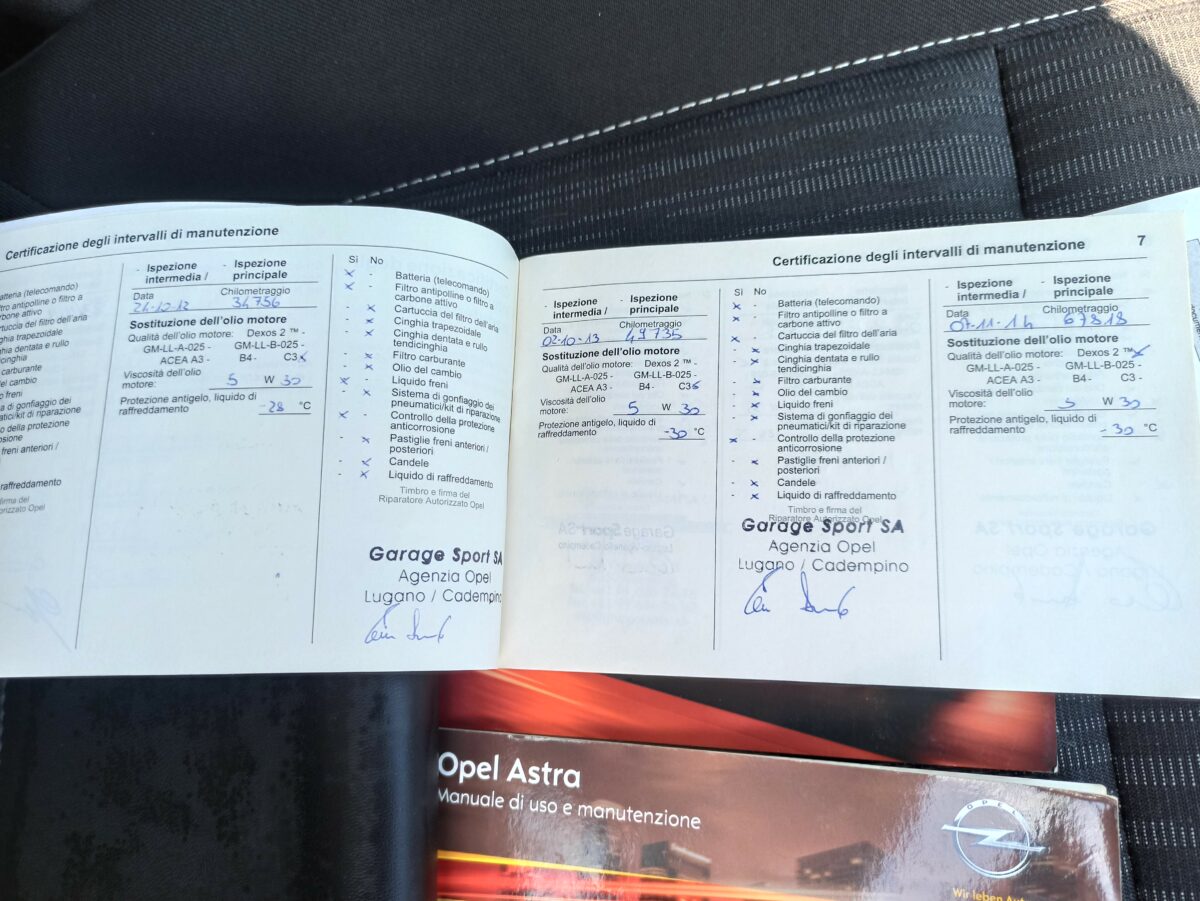 Certificazione degli intervalli di manutenzione
carbone attivo
carburante
del cambio
o freni
freni anteriori /
raffreddamento
firma del
- Ispezione intermedia /
- Ispezione principale
Data
Chilometraggio
34756
Sostituzione dell'olio motore
Qualità dell'olio motore: Dexos 2 ™ -
GM-LL-A-025 - GM-LL-B-025 -
ACEA A3 - B4 - C3 x
Viscosità dell'olio
motore: 5 W 30
Protezione antigelo, liquido di
raffreddamento -28 °C
Sì No
x - Batteria (telecomando)
x - Filtro antipolline o filtro a
carbone attivo
- x Cartuccia del filtro dell'aria
- x Cinghia trapezoidale
- x Cinghia dentata e rullo
tendicinghia
- x Filtro carburante
- x Olio del cambio
x - Liquido freni
- x Sistema di gonfiaggio dei
pneumatici/kit di riparazione
x - Controllo della protezione
anticorrosione
- x Pastiglie freni anteriori /
posteriori
- x Candele
- x Liquido di raffreddamento
Timbro e firma del
Riparatore Autorizzato Opel
Garage Sport SA
Agenzia Opel
Lugano / Cadempino
Certificazione degli intervalli di manutenzione 7
- Ispezione intermedia /
- Ispezione principale
Data
Chilometraggio
02-10-13 49735
Sostituzione dell'olio motore
Qualità dell'olio motore: Dexos 2 ™ -
GM-LL-A-025 - GM-LL-B-025 -
ACEA A3 - B4 - C3 x
Viscosità dell'olio
motore: 5 W 30
Protezione antigelo, liquido di
raffreddamento -30 °C
Sì No
x - Batteria (telecomando)
x - Filtro antipolline o filtro a
carbone attivo
x - Cartuccia del filtro dell'aria
- x Cinghia trapezoidale
- x Cinghia dentata e rullo
tendicinghia
- x Filtro carburante
- x Olio del cambio
- x Liquido freni
- x Sistema di gonfiaggio dei
pneumatici/kit di riparazione
x - Controllo della protezione
anticorrosione
- x Pastiglie freni anteriori /
posteriori
- x Candele
- x Liquido di raffreddamento
Timbro e firma del
Riparatore Autorizzato Opel
Garage Sport SA
Agenzia Opel
Lugano / Cadempino
- Ispezione intermedia /
- Ispezione principale
Data
Chilometraggio
07-11-14 67818
Sostituzione dell'olio motore
Qualità dell'olio motore: Dexos 2 ™ x
GM-LL-A-025 - GM-LL-B-025 -
ACEA A3 - B4 - C3 -
Viscosità dell'olio
motore: 5 W 30
Protezione antigelo, liquido di
raffreddamento -30 °C
Opel Astra
Manuale di uso e manutenzione
OPEL
Wir leben